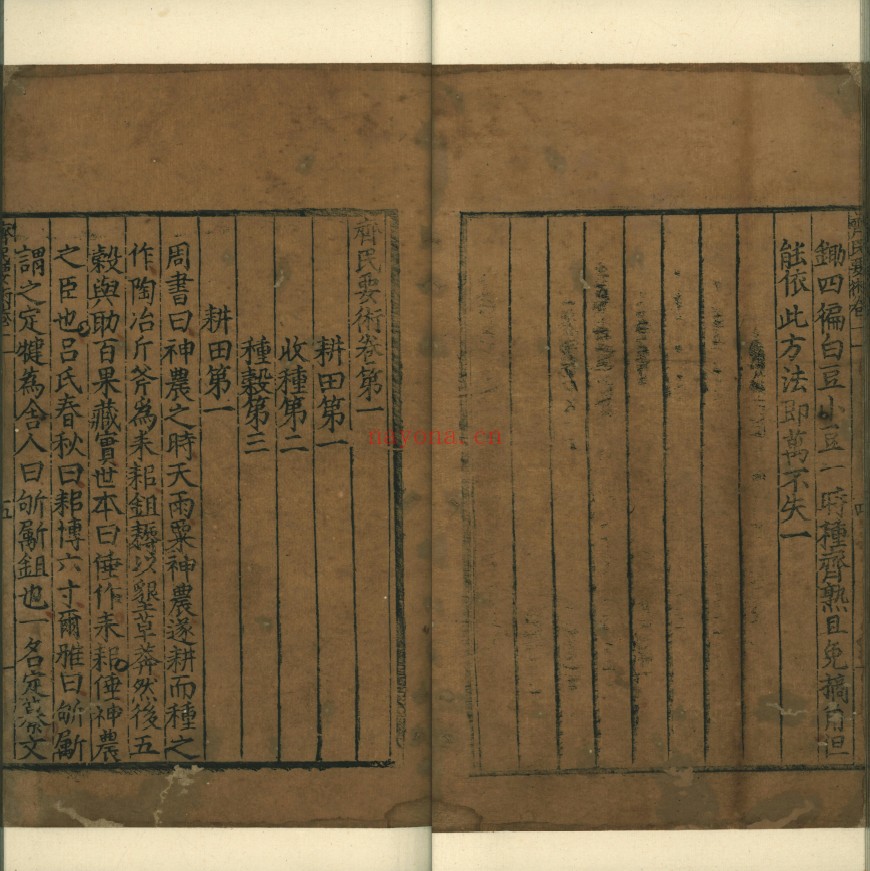 齊民要術卷一
鋤四徧白豆小豆一時種齊熟且免摘角但
能依此方法即萬不失一
齊民要術卷第一
耕田第一
收種第二
種穀第三
耕田第一
周書曰神農之時天雨粟神農遂耕而種之
作陶冶斤斧為耒耜鉏耨以墾草莽然後五
穀與助百果藏實世本曰倕作耒耜倕神農
之臣也呂氏春秋曰耜博六寸爾雅曰斪斸
謂之定犍為舍人曰斪斸鉏也一名定纂文
五
nayona.cn